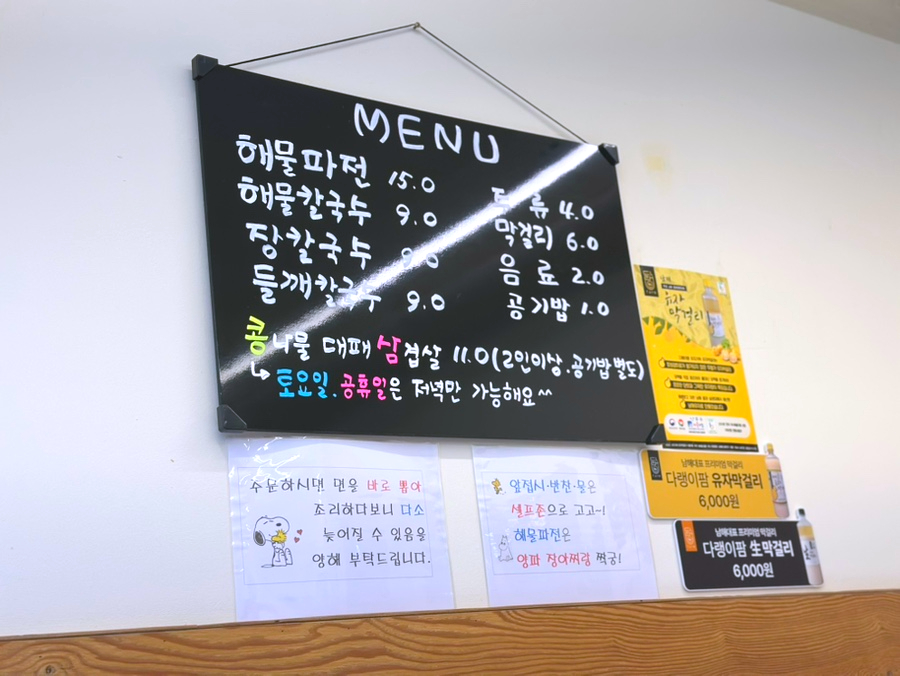 MENU
해물파전 15.0
해물칼국수 9.0
장칼국수
들깨칼국수 9.0
류 4.0
막걸리 6.0
음료 2.0
공기밥 1.0
콩나물 대패삼겹살 11.0(2인이상.공기밥별도)
토요일.공휴일은 저녁만 가능해요^^
주문하시면 면을 바로 뽑아
조리하다보니 다소
늦어질 수 있음을
양해 부탁드립니다.
앞접시·반찬·물은
셀프존으로 고고~!
해물파전은
양파 장아찌랑 찍궁!
유자
막걸리
남해대표 프리미엄 막걸리
다랭이팜 유자막걸리
6,000원
남해대표 프리미엄 막걸리
다랭이팜 生막걸리
6,000원